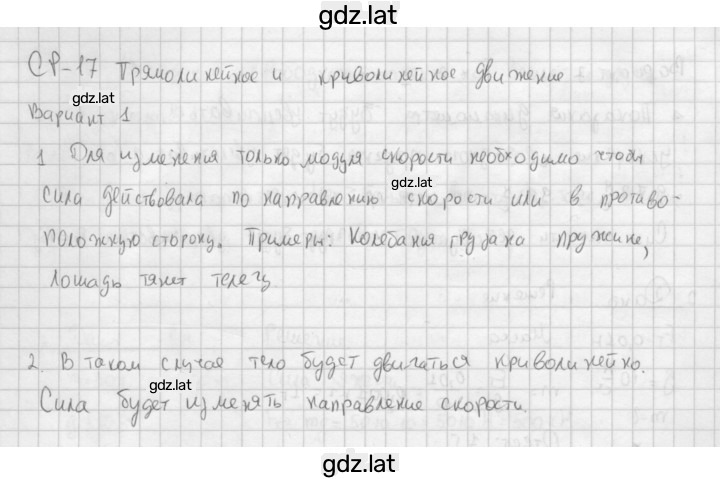 gdz.lat
СР-17 Прямолинейное и криволинейное движение
gdz.lat
Вариант 1
1 Для изменения только модуля скорости необходимо чтобы
gdz.lat
сила действовала по направлению скорости или в противо-
положную сторону. Примеры: Колебания груза на пружине,
лошадь тянет телегу
2. В таком случае тело будет двигаться криволинейно.
gdz.lat
Сила будет изменять направление скорости.
gdz.lat